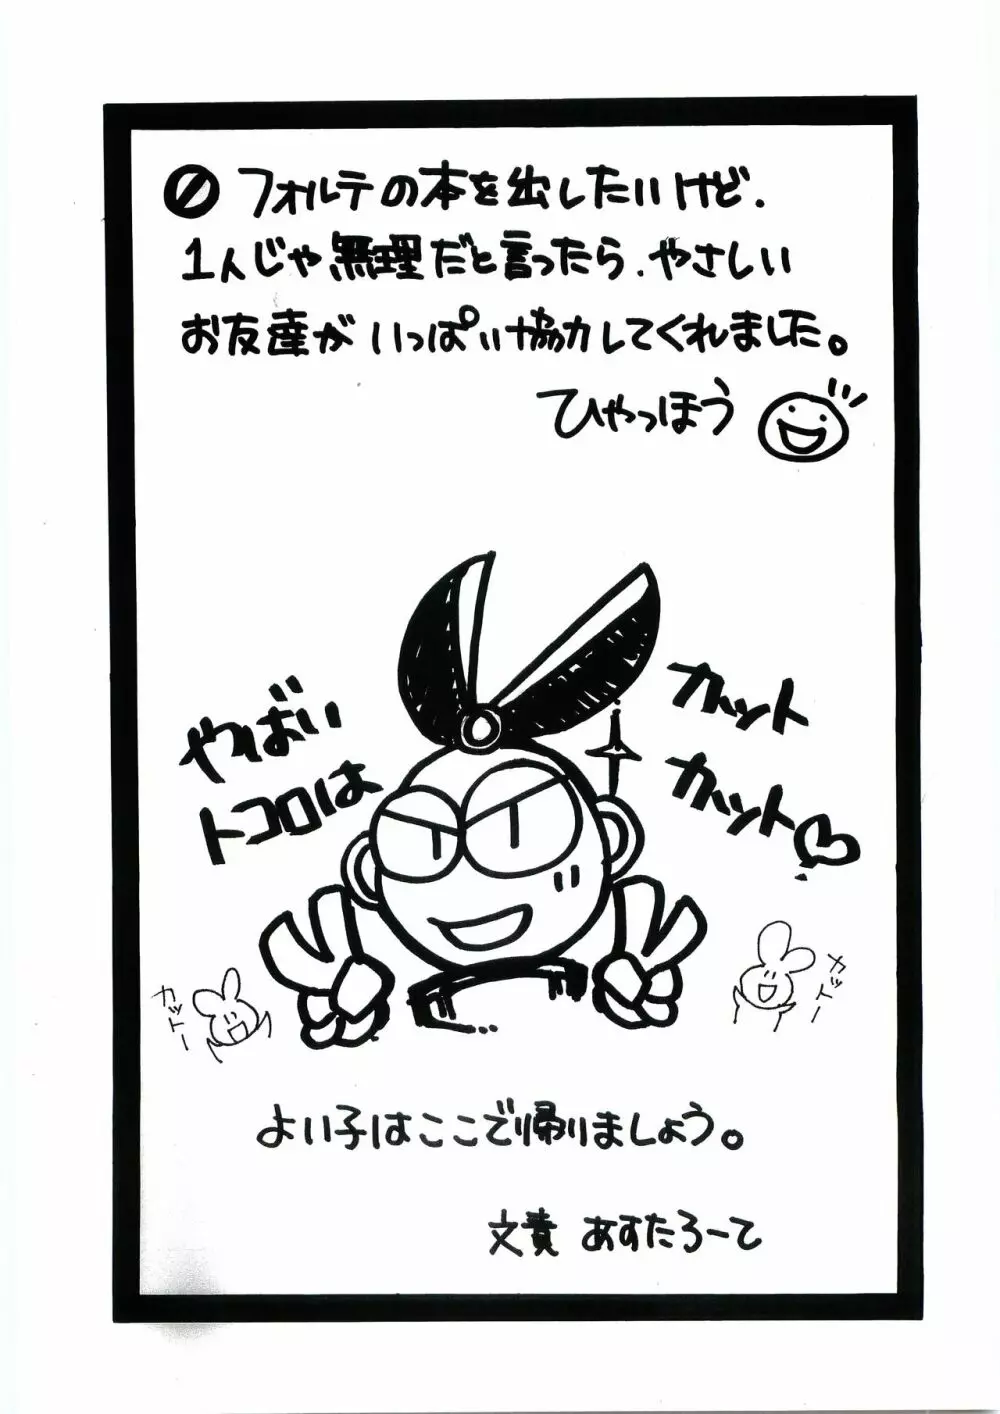 フォルテの本を出したいけど.
1人じゃ無理だと言ったら、やさしい
お友達がいっぱい協力してくれました。
ひゃっほう
やばい
トコロは
カット
カット♡
カットー
カットー
よい子はここで帰りましょう。
文責 あすたろーて